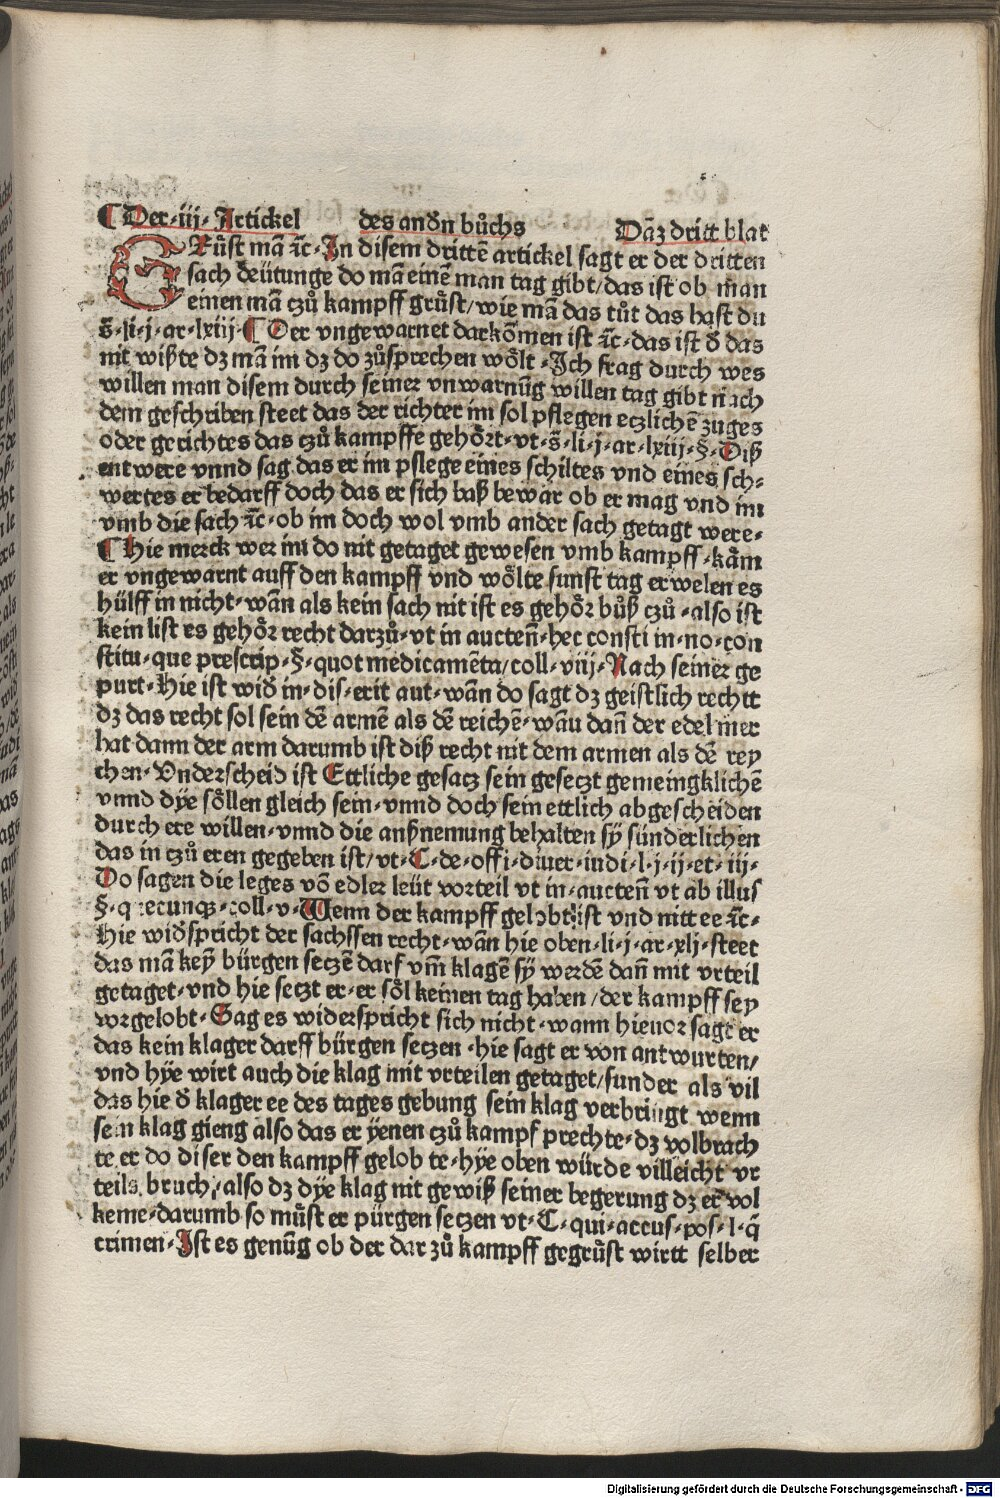 ¶ Der·iij·Artickel des andn̄ bůchs Daz dritt blat
GRůst mā ꝛc̄·In disem drittē artickel sagt er der dritten
sach dēütunge do mā einē man tag gibt/das ist ob man
einen mā czů kampff grůst/wie mā das tůt das hast du
s̄·li·j·ar·lxiij·¶ Der vngewarnet darkōmen ist ꝛc̄·das ist ď das
nit wißte dz mā im dz do zůsprechen wȫlt·Ich frag durch wes
willen man disem durch seiner vnwarnūg willen tag gibt nach
dem geschriben steet das der richter im sol pflegen etzlichē zuges
oder gerichtes das czů kampffe gehȫrt·vt·s̄·li·j·ar·lxiij·§·Diß
entwere vnnd sag das er im pflege eines schiltes vnd eines sch⸗
wertes er bedarff doch das er sich baß bewar ob er mag vnd im
vmb die sach ꝛc̄·ob im doch wol vmb ander sach getagt were·
¶ Hie merck wer im do nit getaget gewesen vmb kampff·kåm
er vngewarnt auff den kampff vnd wȫlte sunst tag erwelen es
hülff in nicht·wān als kein sach nit ist es gehȫr bůß czů·also ist
kein list es gehȫr recht darzů·vt in aucten̄·hec consti in·no·con
stitu·que prescrip·§·quot medicamēta/coll·viij·Nach seiner ge
purt·Hie ist wid in·dis·erit aut·wān do sagt dz geistlich rechtt
dz das recht sol sein dē armē als dē reichē·wāu dan̄ der edel mer
hat dann der arm darumb ist diß recht nit dem armen als dē rey
chen·Vnderscheid ist Ettliche gesatz sein gesetzt gemeingklichē
vnnd dÿe sȫllen gleich sein·vnnd doch sein ettlich abgescheiden
durch ere willen·vnnd die anßnemung behalten sÿ sünderlichen
das in czů eren gegeben ist/vt·C·de·offi·diuer·iudi·l·j·ij·et·iij·
Do sagen die leges vō edler leüt vorteil vt in·aucten̄ vt ab illus
§·q·recunqꝫ·coll·v·Wenn der kampff gelobt ist vnd nitt ee ꝛc̄·
Hie widspricht der sachssen recht·wān hie oben·li·j·ar·xlj·steet
das mā keÿ bürgen setzē darf vm̄ klagē sÿ werdē dan̄ mit vrteil
getaget·vnd hie setzt er·er sȫl keinen tag haben/der kampff sey
vorgelobt·Sag es widerspricht sich nicht·wann hieuor sagt er
das kein klager darff bürgen setzen·hie sagt er von antwurten/
vnd hÿe wirt auch die klag mit vrteilen getaget/sunder als vil
das hie ď klager ee des tages gebung sein klag verbringt wenn
sein klag gieng also das er ÿenen czů kampf prechte·dz volbrach
te er do diser den kampff gelob te·hÿe oben würde villeicht vr
teils bruch/also dz dÿe klag nit gewiß seiner begerung dz er vol
keme·darumb so můst er pürgen setzen vt·C·qui·accus·pos·l·q̄
crimen·Ist es genūg ob der dar zů kampff gegrůst wirtt selber
Digitalisierung gefördert durch die Deutsche Forschungsgemeinschaft - DFG